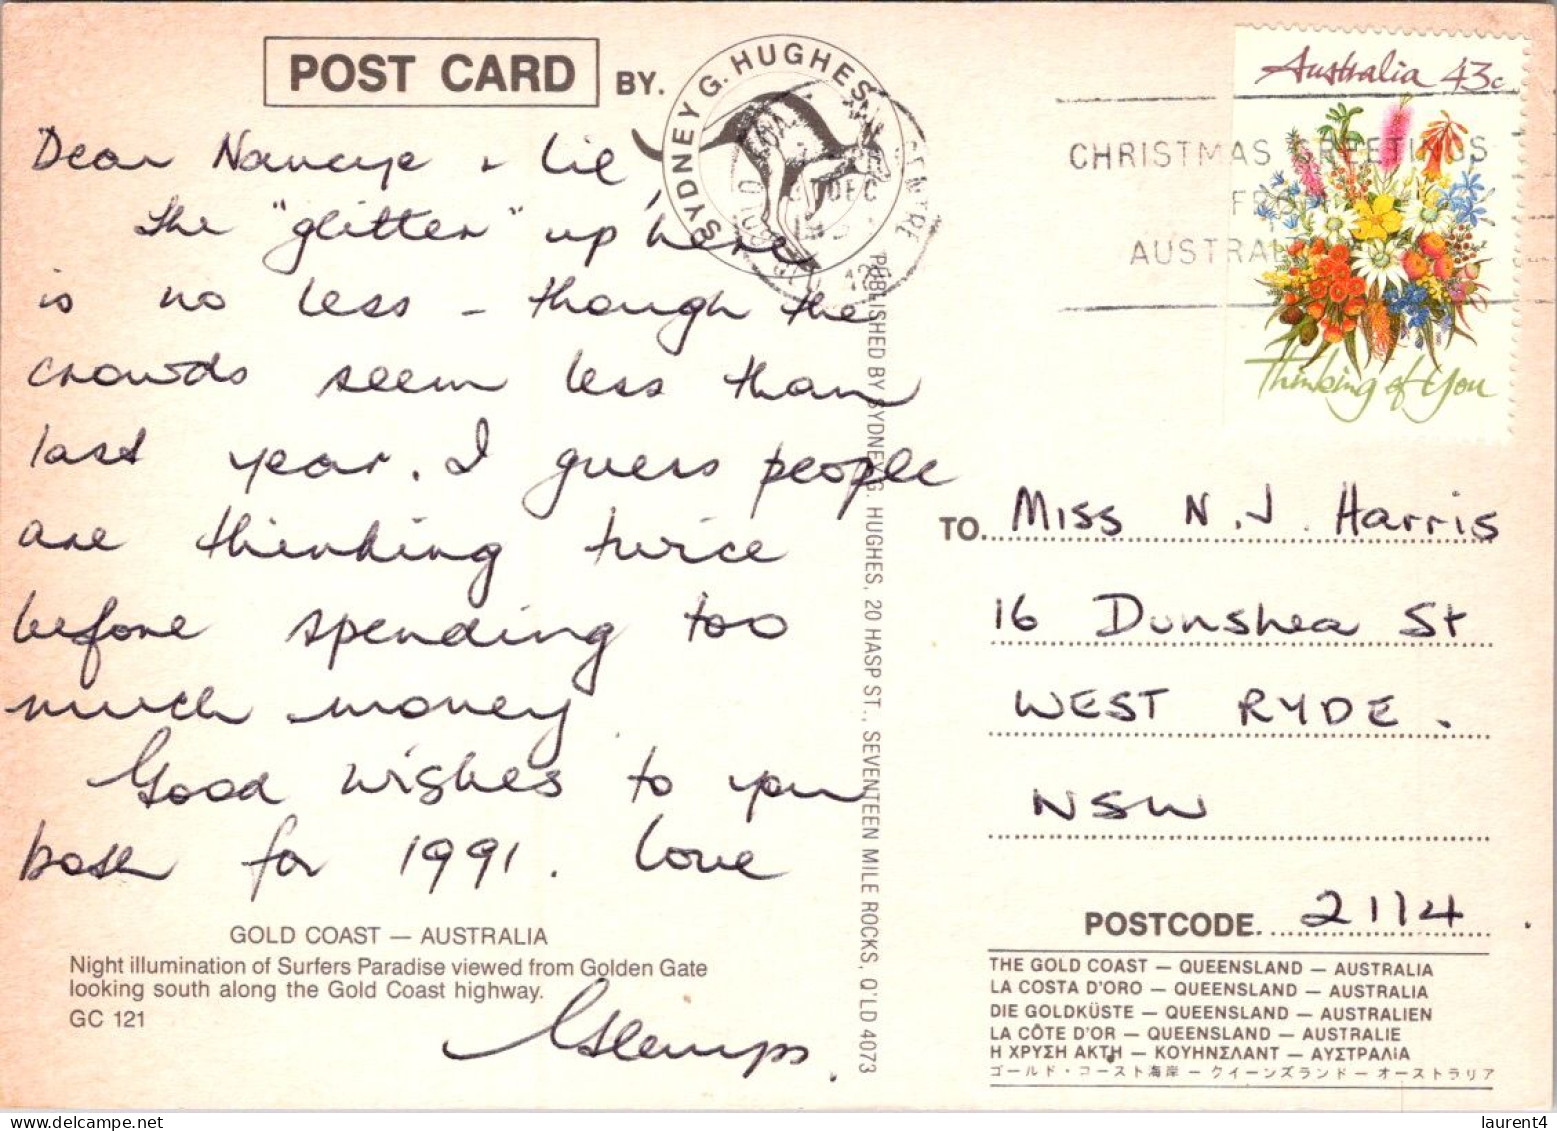 POST CARD BY.
SYDNEY G. HUGHES
Dear Nancye & Lil,
the "glitter" up here
is no less - though the
crowds seem less than
last year. I guess people
are thinking twice
before spending too
much money.
Good wishes to you
both for 1991. Love
GOLD COAST — AUSTRALIA
Night illumination of Surfers Paradise viewed from Golden Gate
looking south along the Gold Coast highway.
GC 121
PUBLISHED BY SYDNEY G. HUGHES, 20 HASP ST., SEVENTEEN MILE ROCKS, Q'LD 4073
Australia 43c
Thinking of You
CHRISTMAS GREETINGS
FROM
AUSTRALIA
DEC
CENTRE
TO. Miss N. J. Harris
16 Dunshea St
WEST RYDE.
NSW
POSTCODE 2114
THE GOLD COAST — QUEENSLAND — AUSTRALIA
LA COSTA D'ORO — QUEENSLAND — AUSTRALIA
DIE GOLDKÜSTE — QUEENSLAND — AUSTRALIEN
LA CÔTE D'OR — QUEENSLAND — AUSTRALIE
Η ΧΡΥΣΗ ΑΚΤΗ — ΚΟΥΗΝΣΛΑΝΤ — ΑΥΣΤΡΑΛΙΑ
ゴールド・コースト海岸 — クイーンズランド — オーストラリア
laurent4